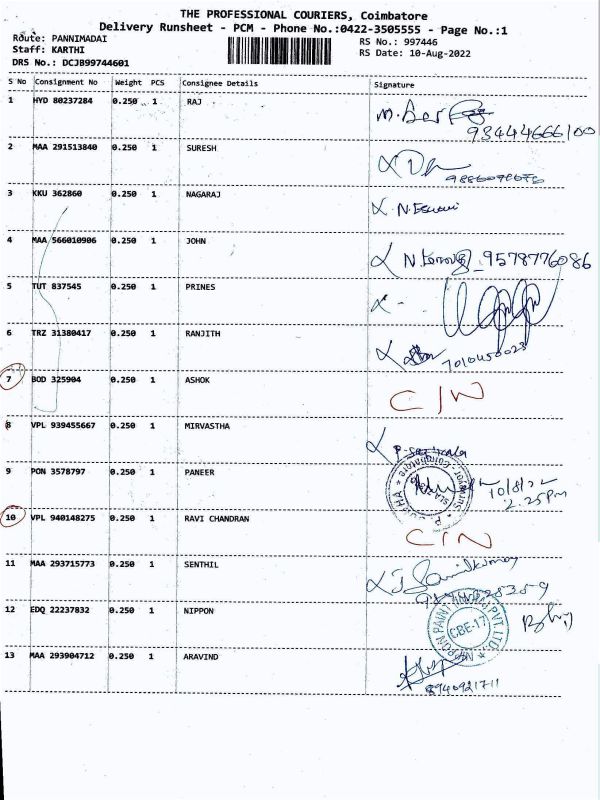 THE PROFESSIONAL COURIERS, Coimbatore
Delivery Runsheet - PCM - Phone No.:0422-3505555 - Page No.:1
Route: PANNIMADAI
RS No.: 997446
Staff: KARTHI
RS Date: 10-Aug-2022
DRS No.: DCJB99744601
S No Consignment No Weight PCS Consignee Details Signature
1 HYD 80237284 0.250 1 RAJ
2 MAA 291513840 0.250 1 SURESH
3 KKU 362860 0.250 1 NAGARAJ
4 MAA 566010906 0.250 1 JOHN 9578776086
5 TUT 837545 0.250 1 PRINES
6 TRZ 31380417 0.250 1 RANJITH
7 BOD 325904 0.250 1 ASHOK C/N
8 VPL 939455667 0.250 1 MIRVASTHA
9 PON 3578797 0.250 1 PANEER 10/8/22
2.25PM
10 VPL 940148275 0.250 1 RAVI CHANDRAN C/N
11 MAA 293715773 0.250 1 SENTHIL
12 EDQ 22237832 0.250 1 NIPPON CBE-17
13 MAA 293904712 0.250 1 ARAVIND
8940921711